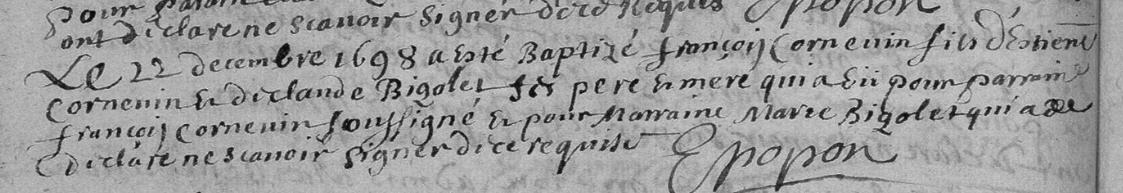 pour
ont declare ne scavoir signer de ce requis Epopon
Le 22 decembre 1698 a esté Baptizé françois Cornevin fils d'Estiene
Cornevin & de claude Bigolet ses pere & mere qui a eü pour parrain
françois Cornevin soussigné & pour Marraine Marie Bigolet qui a de
declare ne scavoir signer de ce requise Epopon